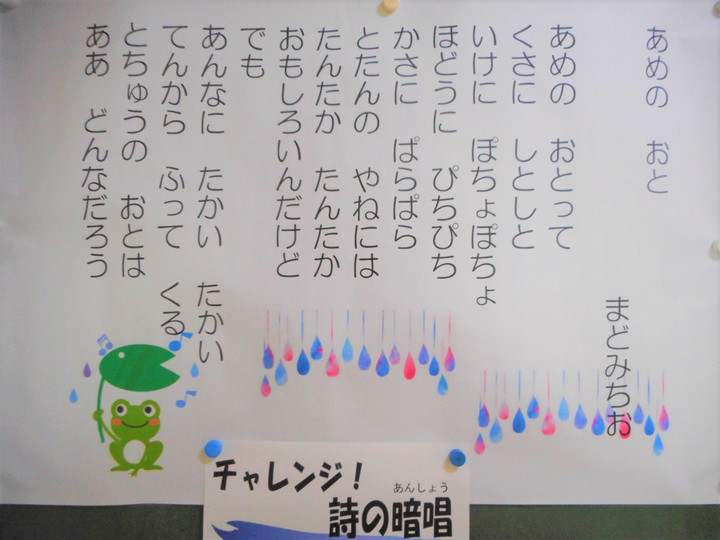 あめの　おと
まどみちお
あめの　おとって
くさに　しとしと
いけに　ぽちょぽちょ
ほどうに　ぴちぴち
かさに　ぱらぱら
とたんの　やねには
たんたか　たんたか
おもしろいんだけど
でも
あんなに　たかい　たかい
てんから　ふって　くる
とちゅうの　おとは
ああ　どんなだろう
チャレンジ！
あんしょう
詩の暗唱